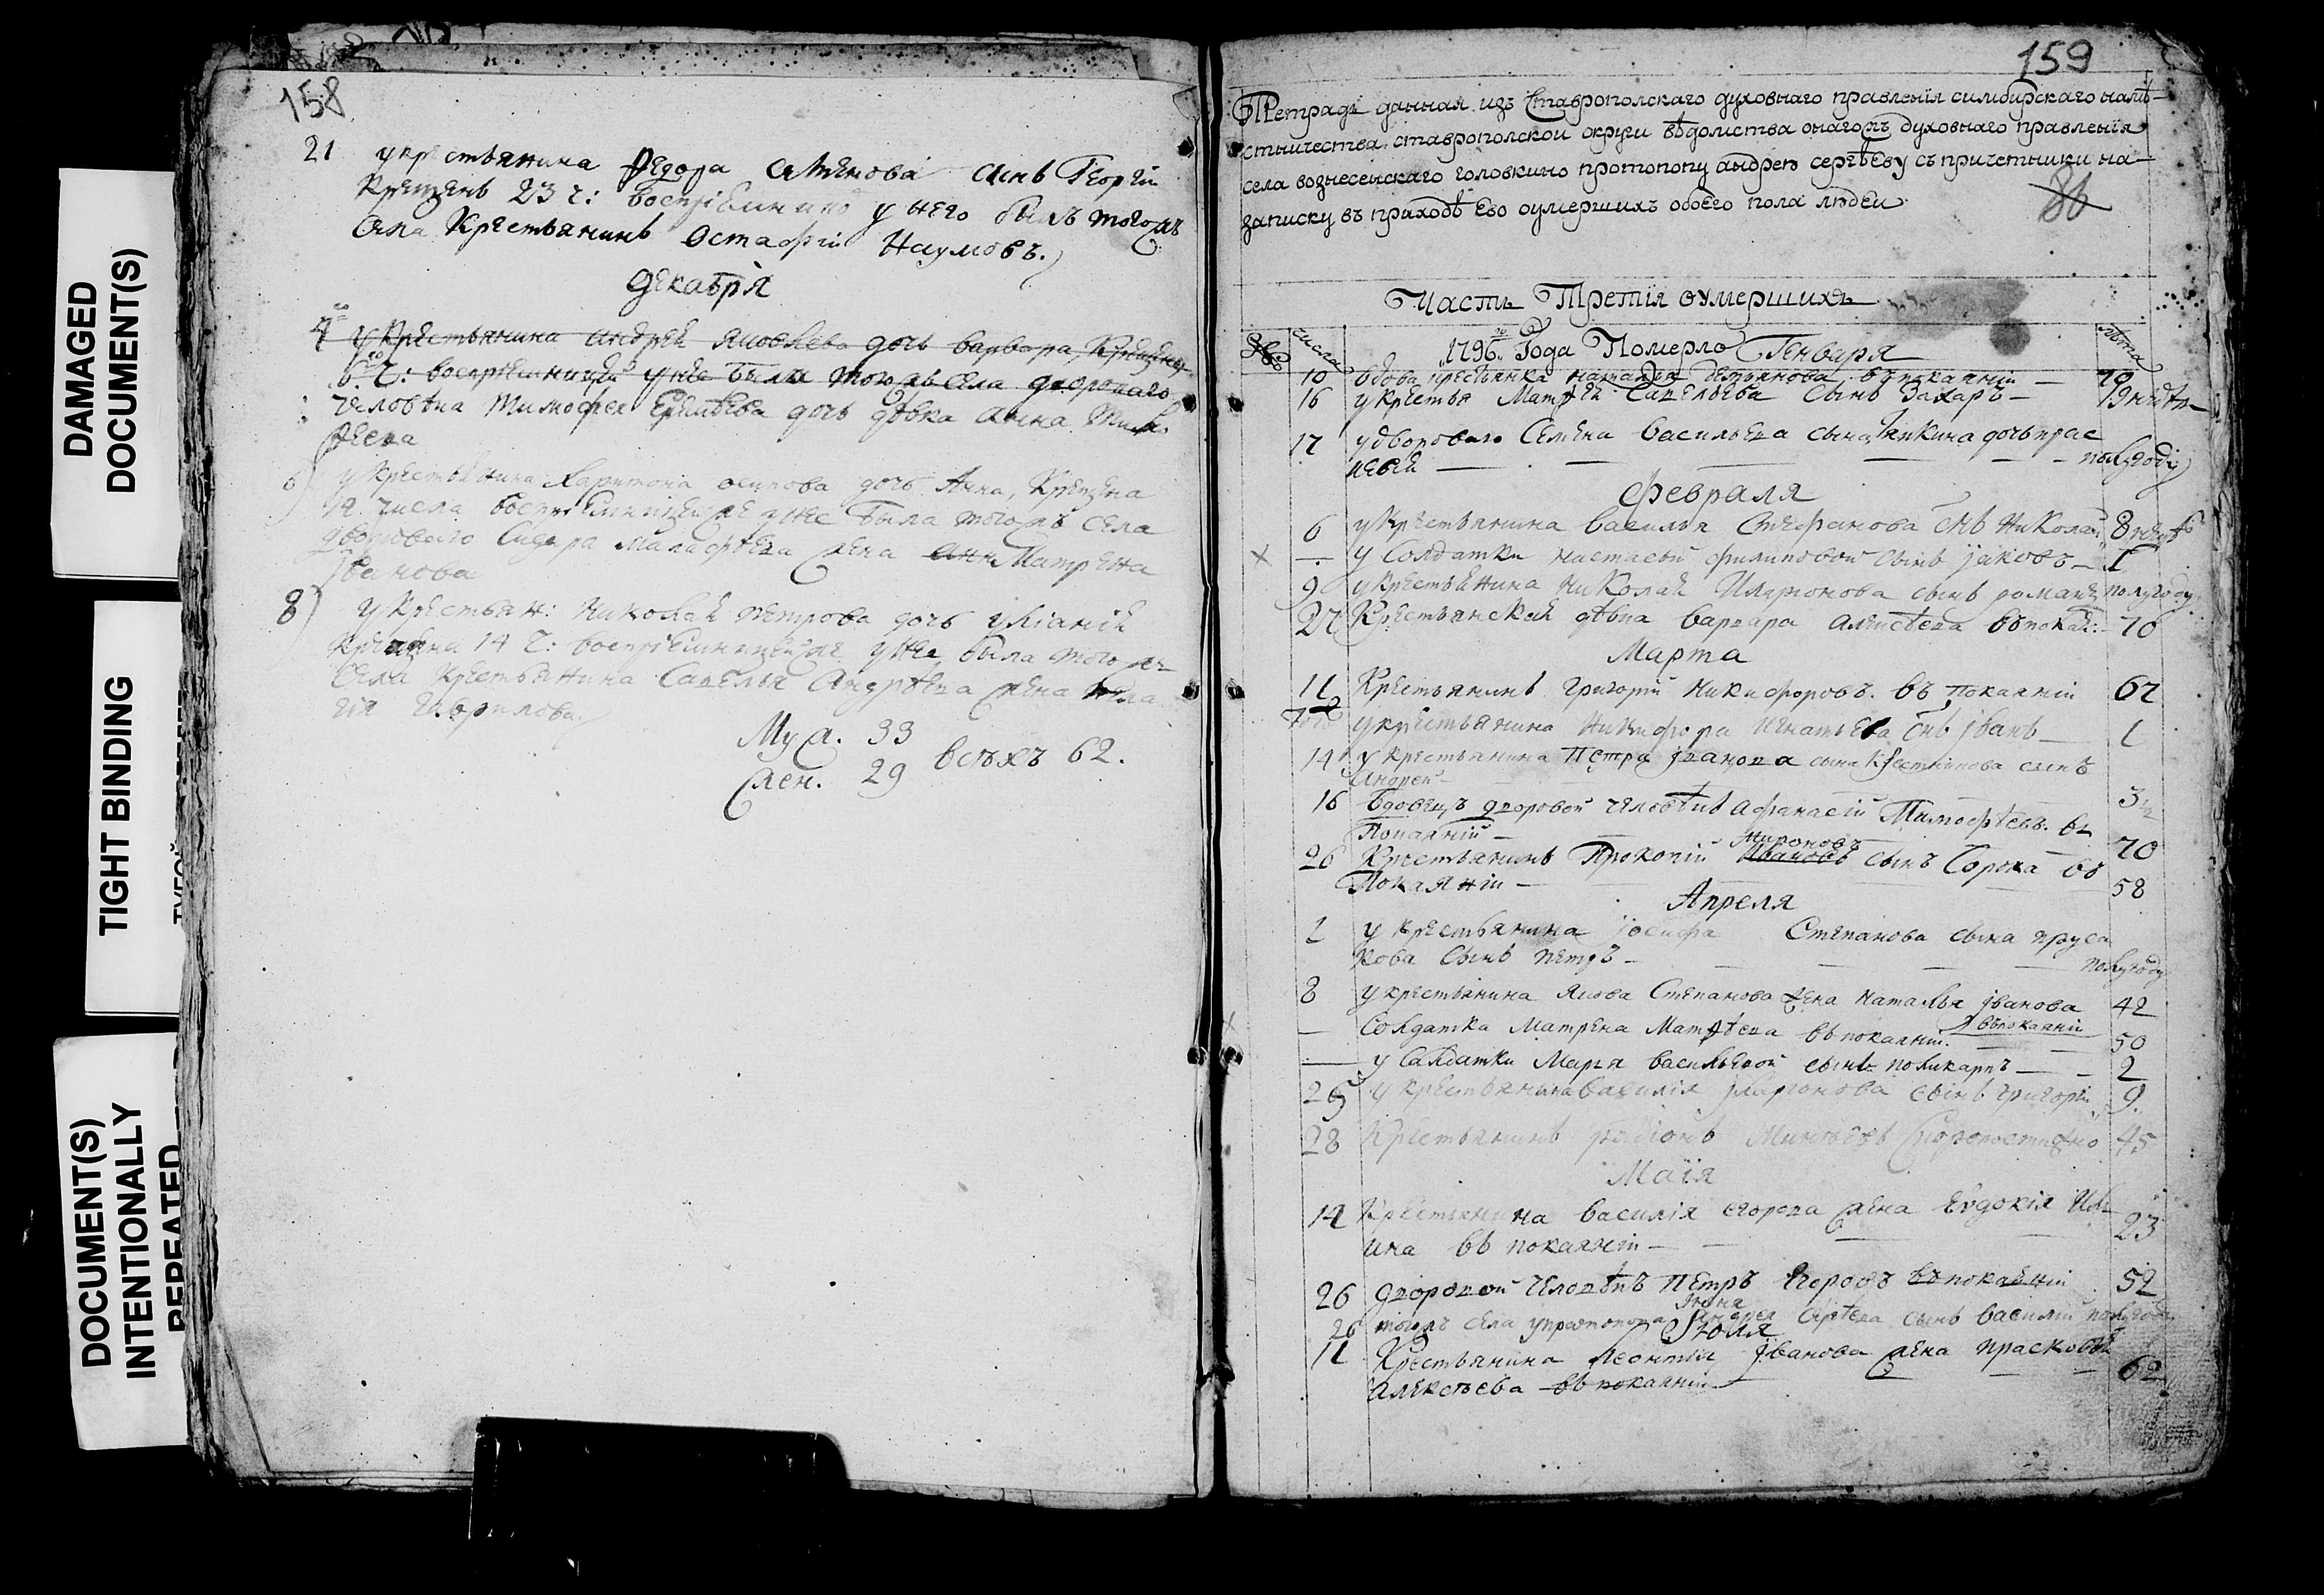 DAMAGED
DOCUMENT(S)
TIGHT BINDING
DOCUMENT(S)
INTENTIONALLY
REPEATED
158
21 укрестьянина Федора Семенова синъ Георгий
Крещенъ 23 ч: воспріемникъ у него былъ тогожъ
села Крестьянинъ Остафій Наумовъ.
Декабря
4 у Крестьянина Андрея Яковлева дочь варвара, Крещена
6. ч: воспріемницей у нее была тогожъ села двороваго
человѣка Тимофея дочь дѣвка Анна Тимо
феева
6) у крестьянина Харитона осипова дочь Анна, Крещена
числа воспріемницей же унее была тогожъ села
двороваго Сидора Малафѣева жена Матрена
Іванова
8) у Крестьян: Николая петрова дочь уліанія
Крещена 14 ч: воспріемницей же унее была того жъ
села Крестьянина Савелья Андрѣева жена
гія Гаврилова.
Муж. 33
Жен. 29 всѣхъ 62.
159
Тетрадь данная изъ Ставрополскаго духовнаго правленія симбирскаго намѣ-
стничества ставрополской округи вѣдомства онагожъ духовнаго правленія
села вознесенскаго головкино протопопу андрею сергѣеву съ причетники на-
записку въ приходѣ ево оумершихъ обоего пола людей
86
Часть Третія оумершихъ
числа 1796го Года Померло Генваря лѣта
10 вдова крестьянка наталья въпокаяніи — 70
16 укрестья Матфея Савельева сынъ Захаръ —
17 удвороваго Семена Васильева сына дочь прас
ковея — полугоду
февраля
6 укрестьянина василья Стефанова снъ Николай 8
× — у Солдатки настасьи филиповой сынъ јаковъ — 1
9 укрестьянина Николая Иларионова сынъ романъ полугоду
27 Крестьянская дѣвка варвара алексѣева въпокая: 70
Марта
11 Крестьянинъ григорій Никифоровъ. въ покаяніи 67
укрестьянина Никифора Игнатьева снъ јванъ — 1
14 у крестьянина Петра јванова сына сынъ
Андрей — 3 1/2
16 вдовецъ дворовой человѣкъ афанасій Тимофѣевъ. въ
Покаяніи — 70
26 Крестьянинъ Прокопій Ивановъ Мироновъ сынъ Сорока въ
Покаяніи — 58
Апреля
1 у крестьянина јосифа Степанова сына пруса
кова сынъ петръ — полугоду
8 укрестьянина Якова Степанова жена наталья јванова 42
въпокаяніи
— Солдатка матрена Матфѣева въпокаяніи. 50
— у Салдатки Марьи васильевой сынъ поликарпъ — 2
25 у крестьянина василія јларионова сынъ григорій 9.
28 Крестьянинъ Скоропостижно 45
Маія
14 Крестьянина василія егорова жена Евдокія Иль
ина въ покаяніи — 23
26 дворовой человѣкъ Петръ Егоровъ въпокаяніи 52
Июня
26 тогожъ села упротопопа Андрея Сергѣева сынъ василій полугоду
Июля
11 Крестьянина Леонтья јванова жена прасковья
алексѣева въ покаяніи 62